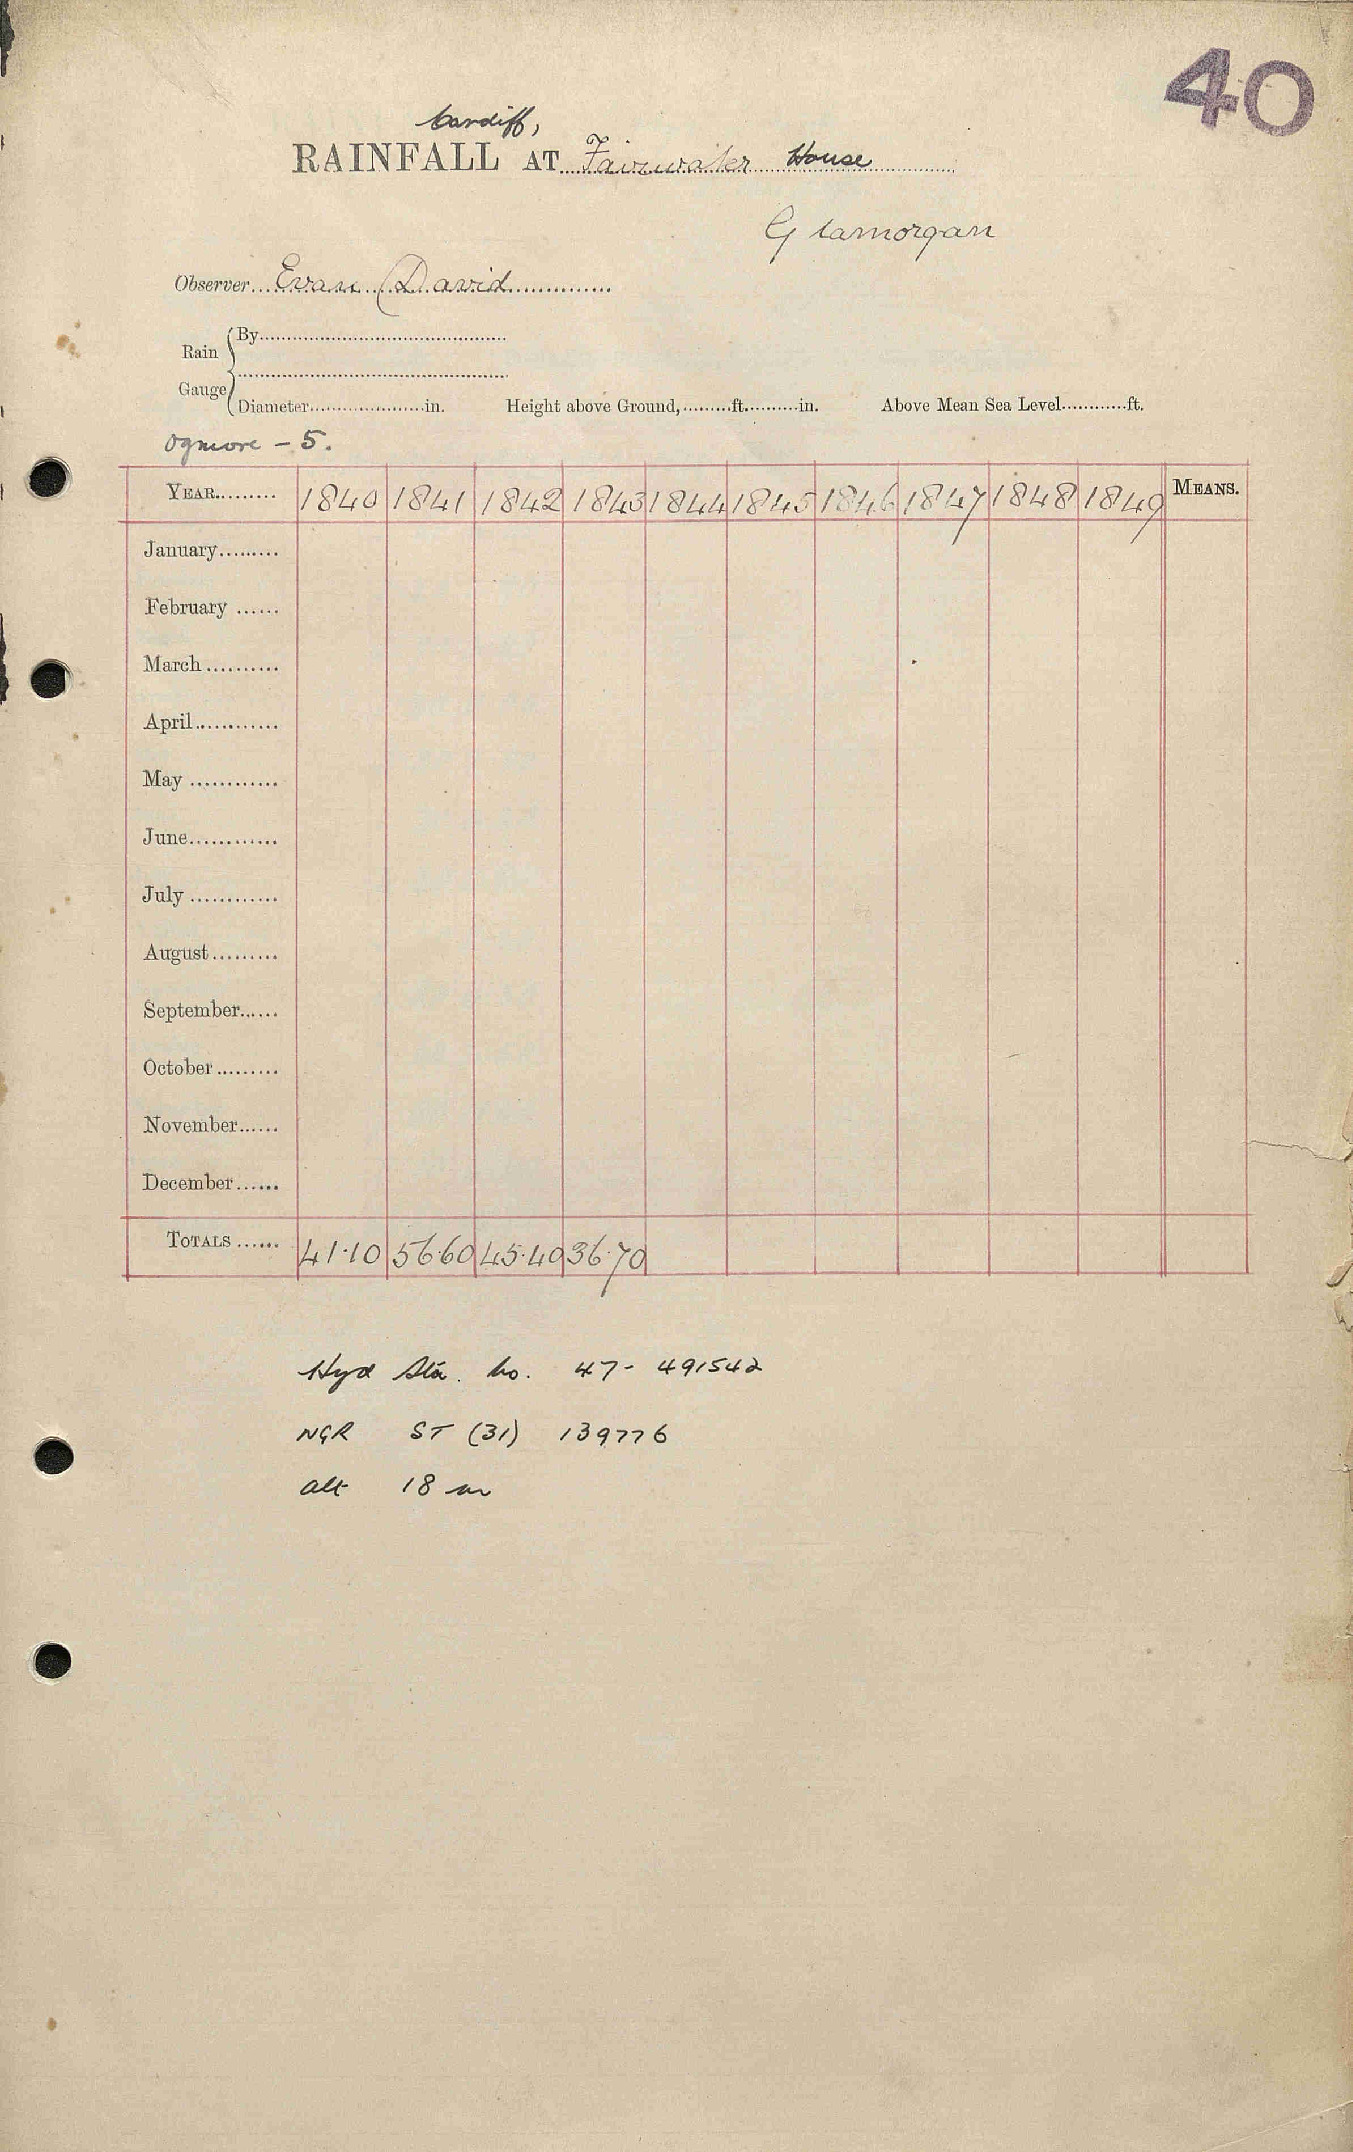 40
Cardiff,
RAINFALL AT Fairwater House
Glamorgan
Observer Evan David
Rain Gauge
By
Diameter in. Height above Ground, ft. in. Above Mean Sea Level ft.
Ogmore - 5.
YEAR 1840 1841 1842 1843 1844 1845 1846 1847 1848 1849 MEANS.
January
February
March
April
May
June
July
August
September
October
November
December
TOTALS 41.10 56.60 45.40 36.70
Hyd Sta. No. 47- 491542
NGR ST (31) 139776
alt 18 m